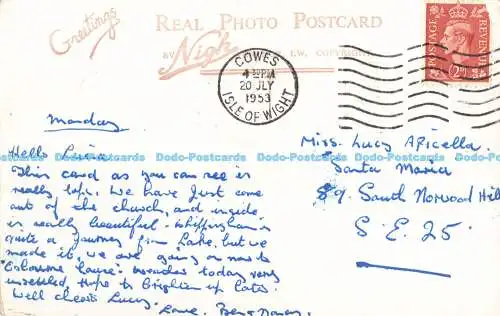 Greetings
REAL PHOTO POSTCARD
BY Nigh I.W. COPYRIGHT
COWES
4 PM
20 JLY
1953
ISLE OF WIGHT
POSTAGE REVENUE
2½D
Monday
Hello
This card as you can see is
really lovely. We have just come
out of the church, and inside
is really beautiful. Whippingham is
quite a journey from Lake, but we
made it, we are going on now to
Osborne House. Weather today very
unsettled. Hope to brighten up later.
Well cheerio Lucy.
Love,
Miss. Lucy Apicella
Santa Maria
89. South Norwood Hill
S.E. 25
Dodo-Postcards Dodo-Postcards Dodo-Postcards Dodo-Postcards Dodo-Postcards